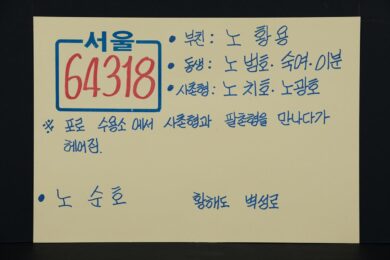 서울
64318
• 부친 : 노 황 용
• 동생 : 노 범호· 숙여· 이분
• 사촌형 : 노 치호· 노광호
※ 포로 수용소에서 사촌형과 팔촌형을 만나다가
헤어짐.
• 노 순 호 황해도 벽성군